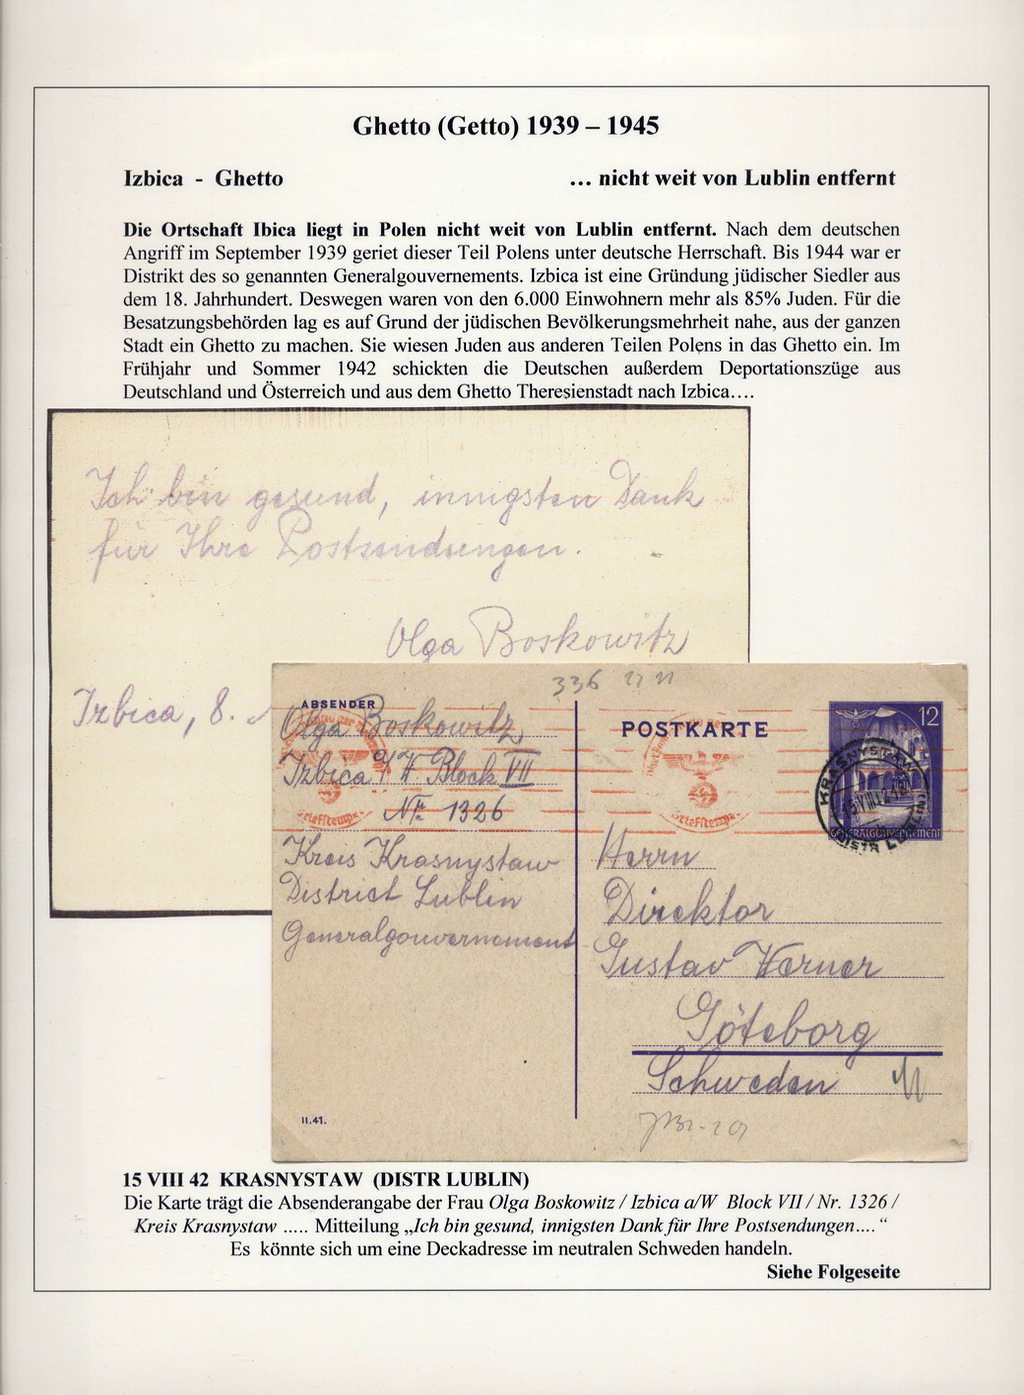 Ghetto (Getto) 1939 – 1945
Izbica - Ghetto
... nicht weit von Lublin entfernt
Die Ortschaft Ibica liegt in Polen nicht weit von Lublin entfernt. Nach dem deutschen
Angriff im September 1939 geriet dieser Teil Polens unter deutsche Herrschaft. Bis 1944 war er
Distrikt des so genannten Generalgouvernements. Izbica ist eine Gründung jüdischer Siedler aus
dem 18. Jahrhundert. Deswegen waren von den 6.000 Einwohnern mehr als 85% Juden. Für die
Besatzungsbehörden lag es auf Grund der jüdischen Bevölkerungsmehrheit nahe, aus der ganzen
Stadt ein Ghetto zu machen. Sie wiesen Juden aus anderen Teilen Polens in das Ghetto ein. Im
Frühjahr und Sommer 1942 schickten die Deutschen außerdem Deportationszüge aus
Deutschland und Österreich und aus dem Ghetto Theresienstadt nach Izbica....
Ich bin gesund, innigsten Dank
für Ihre Postsendungen.
Olga Boskowitz
Izbica, 8.
336
ABSENDER
Olga Boskowitz
Izbica a/W Block VII
Nr. 1326
Kreis Krasnystaw
District Lublin
Generalgouvernement
II.41.
POSTKARTE
12
GENERALGOUVERNEMENT
KRASNYSTAW
(DISTR LUBLIN)
Briefstempel
Herrn
Direktor
Gustav Werner
Göteborg
Schweden
15 VIII 42 KRASNYSTAW (DISTR LUBLIN)
Die Karte trägt die Absenderangabe der Frau Olga Boskowitz / Izbica a/W Block VII / Nr. 1326 /
Kreis Krasnystaw ..... Mitteilung „Ich bin gesund, innigsten Dank für Ihre Postsendungen...."
Es könnte sich um eine Deckadresse im neutralen Schweden handeln.
Siehe Folgeseite